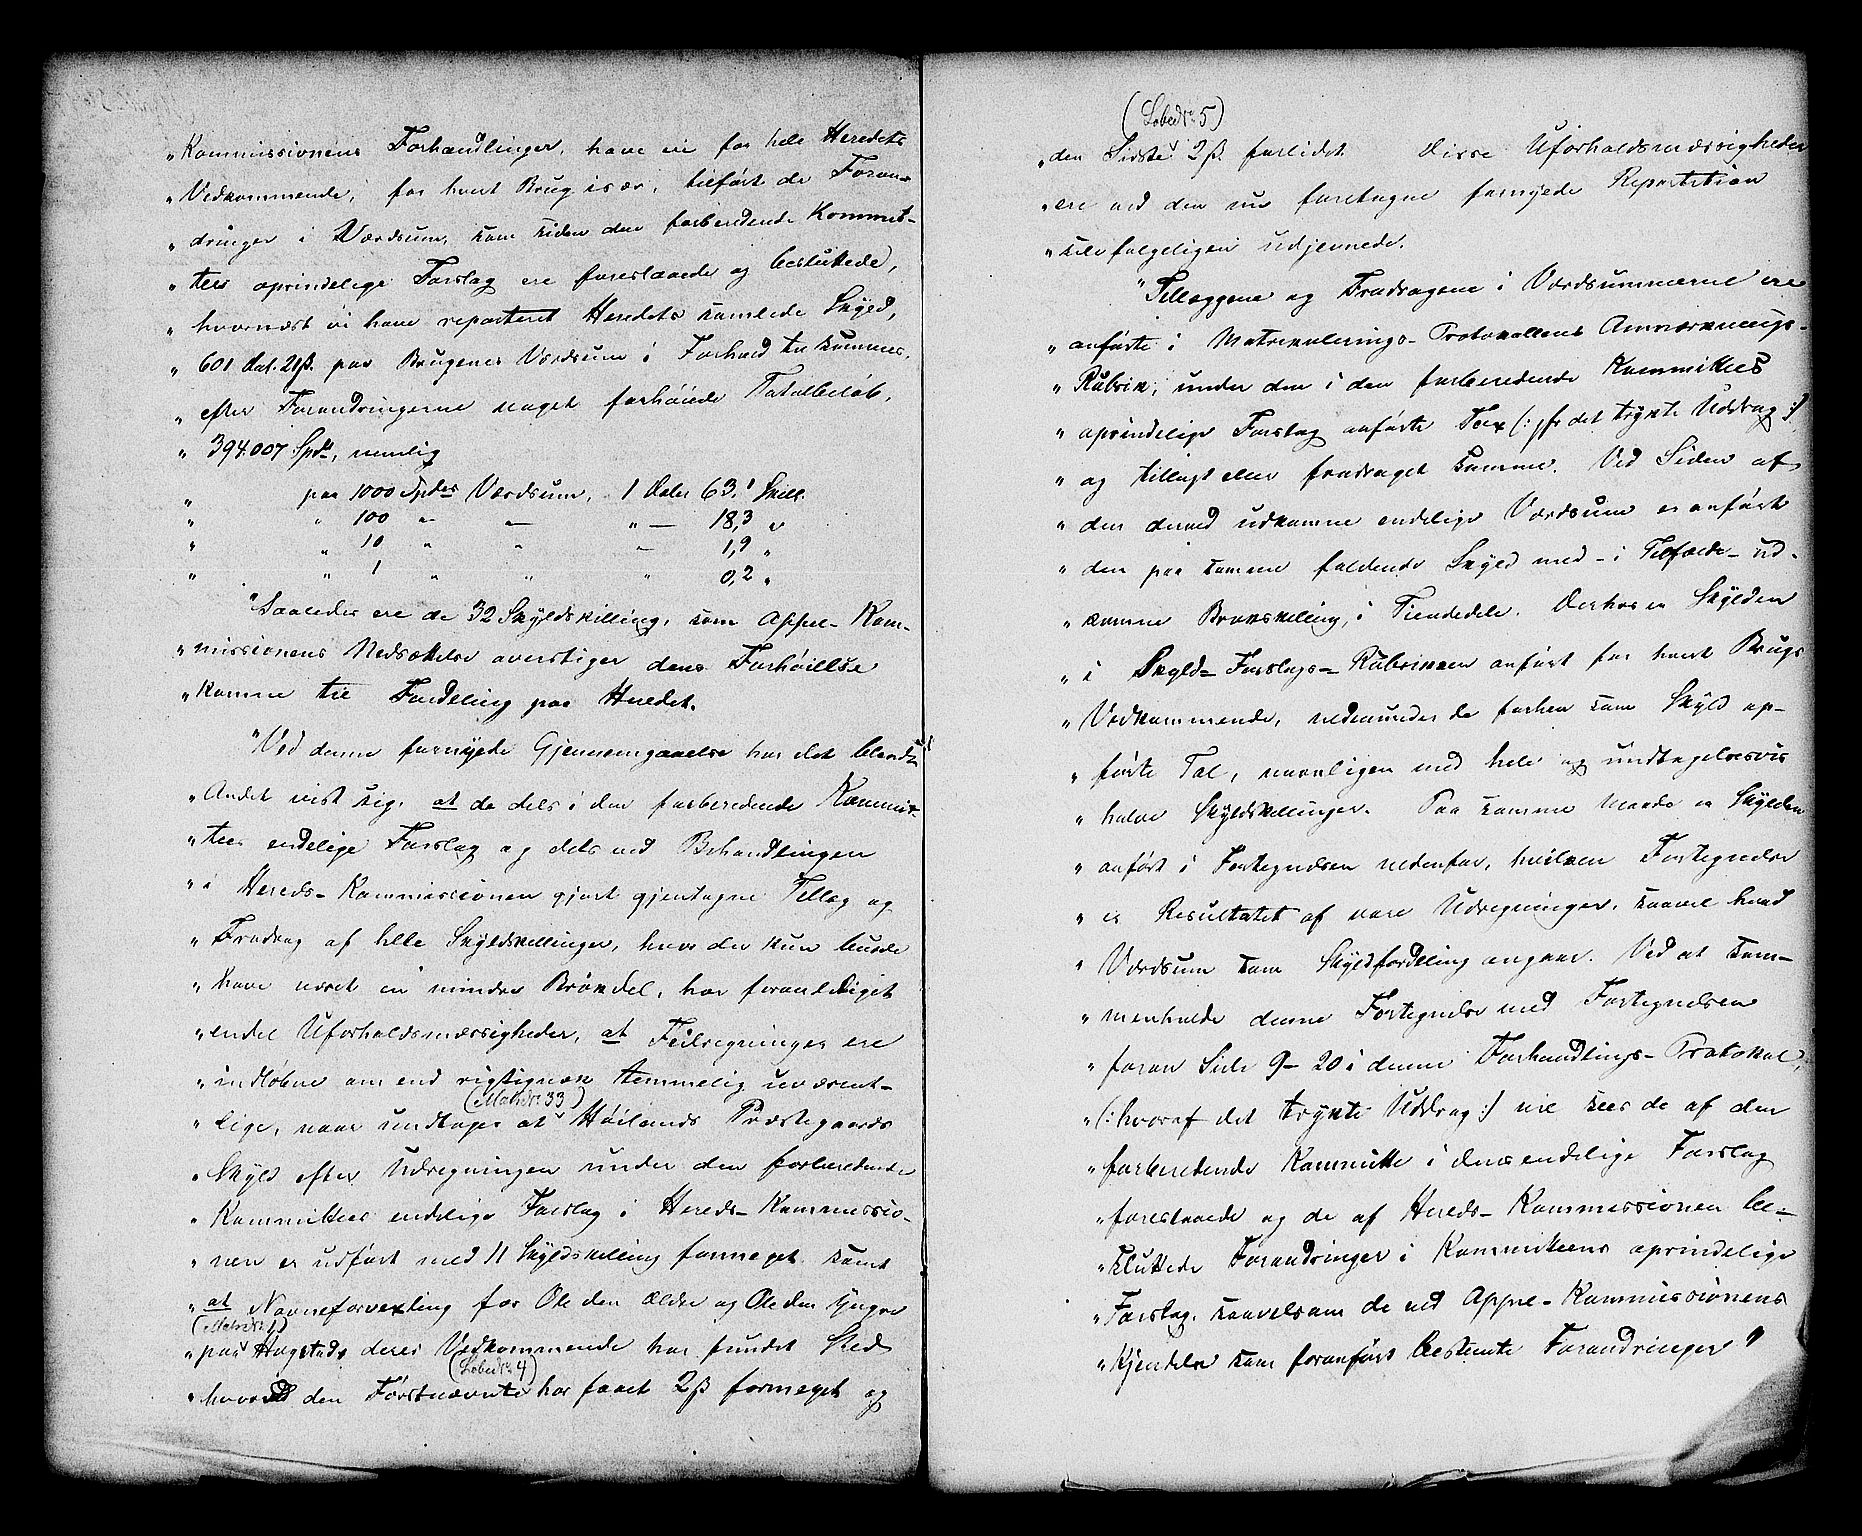 „Kommissionens Forhandlinger, have vi for hele Heredets
„Vedkommende, for hvert Brug især, tilført de Foran-
„dringer i Værdsum, som siden den forberedende Kommit-
„tees oprindelige Forslag ere foreslaaede og besluttede,
„hvornæst vi have reparteret Heredets samlede Skyld,
„601 dal. 21 ß. paa Brugenes Værdsum i Forhold til Summens,
„efter Forandringerne noget forhøiede Totalbeløb,
„394.007 Spd, nemlig
„ paa 1000 Spdlr Værdsum, 1 daler 63,1 Skill.
„ „ 100 „ — „ — 18,3 „
„ „ 10 „ „ — 1,9 „
„ „ 1 „ „ „ 0,2 „
„Saaledes ere de 32 Skyldskilling, som Appel-Kom-
„missionens Nedsættelse overstiger dens Forhøielse
„komne til Fordeling paa Heredet.
„Ved denne fornyede Gjennemgaaelse har det blandt
„Andet vist sig, at de dels i den forberedende Kommit-
„tees endelige Forslag og dels ved Behandlingen
„i Hereds-Kommissionen gjort gjentagne Tillæg og
„Fradrag af hele Skyldskillinger, hvor der kun burde
„have været en mindre Brøkdel, har foranlediget
„endel Uforholdsmæssigheder, at Feilregninger ere
„indløbne om end rigtignok temmelig uvæsent-
(Matr. № 33)
„lige, naar undtages at Høilands Præstegaards
„Skyld efter Udregningen under den forberedende
„Kommittees endelige Forslag i Hereds-Kommissio-
„nen er udført med 11 Skyldskilling formeget samt
„at Navneforvexling for Ole den ældre og Ole den yngre
(Matr. № 1)
„paa Hogstads deres Vedkommende har fundet Sted
(Løbed № 4)
„hvorved den Førstnævnte har faaet 2 ß formeget og
(Løbed № 5)
„den Sidste 2 ß. forlidet. Disse Uforholdsmæssigheder
„ere ved den nu foretagne fornyede Repartition
„selvfølgeligen udjevnede.
„Tillæggene og Fradragene i Værdsummerne ere
„anførte i Matrikulerings-Protokollens Anmærknings-
„Rubrik, under den i den forberedende Kommittees
„oprindelige Forslag anførte Tax (: jfr det trykte Uddrag :)
„og tillagt eller fradraget samme. Ved Siden af
„den derved udkomne endelige Værdsum er anført
„den paa samme faldende Skyld med - i Tilfælde - ud-
„komne Brøkskilling, i Tiendedele. Derhos er Skylden
„i Skyld-Forslags-Rubrikken anført for hvert Brugs
„Vedkommende, nedenunder de forhen som Skyld op-
„førte Tal, navnligen med hele og undtagelsesvis
„halve Skyldskillinger. Paa samme Maade er Skylden
„anført i Fortegnelsen nedenfor, hvilken Fortegnelse
„er Resultatet af vore Udregninger, saavel hvad
„Værdsum som Skyldfordeling angaar. Ved at sam-
„menholde denne Fortegnelse med Fortegnelsen
„foran Side 9-20 i denne Forhandlings-Protokol,
„(: hvoraf det trykte Uddrag :) vil sees de af den
„forberedende Kommitte i dens endelige Forslag
„foreslaaede og de af Hereds-Kommissionen be-
„sluttede Forandringer i Kommitteens oprindelige
„Forslag, saavelsom de ved Appel-Kommissionens
„Kjendelse som foranført bestemte Forandringer"